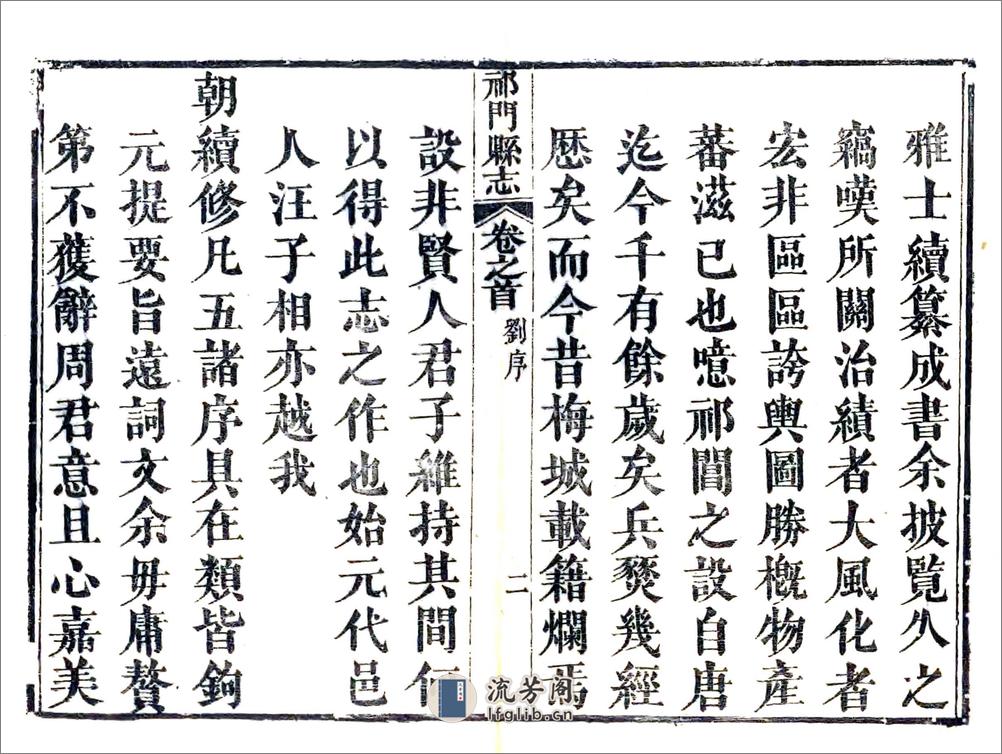 雅士續纂成書余披覽久之
竊嘆所關治績者大風化者
宏非區區誇輿圖勝槪物產
蕃滋已也噫祁閶之設自唐
迄今千有餘歲矣兵燹幾經
歷矣而今昔梅城載籍爛焉
祁門縣志 卷之首 劉序 二
設非賢人君子維持其間何
以得此志之作也始元代邑
人汪子相亦越我
朝續修凡五諸序具在類皆鉤
元提要旨遠詞文余毋庸贅
第不獲辭周君意且心嘉美
流芳阁
lfglib.cn